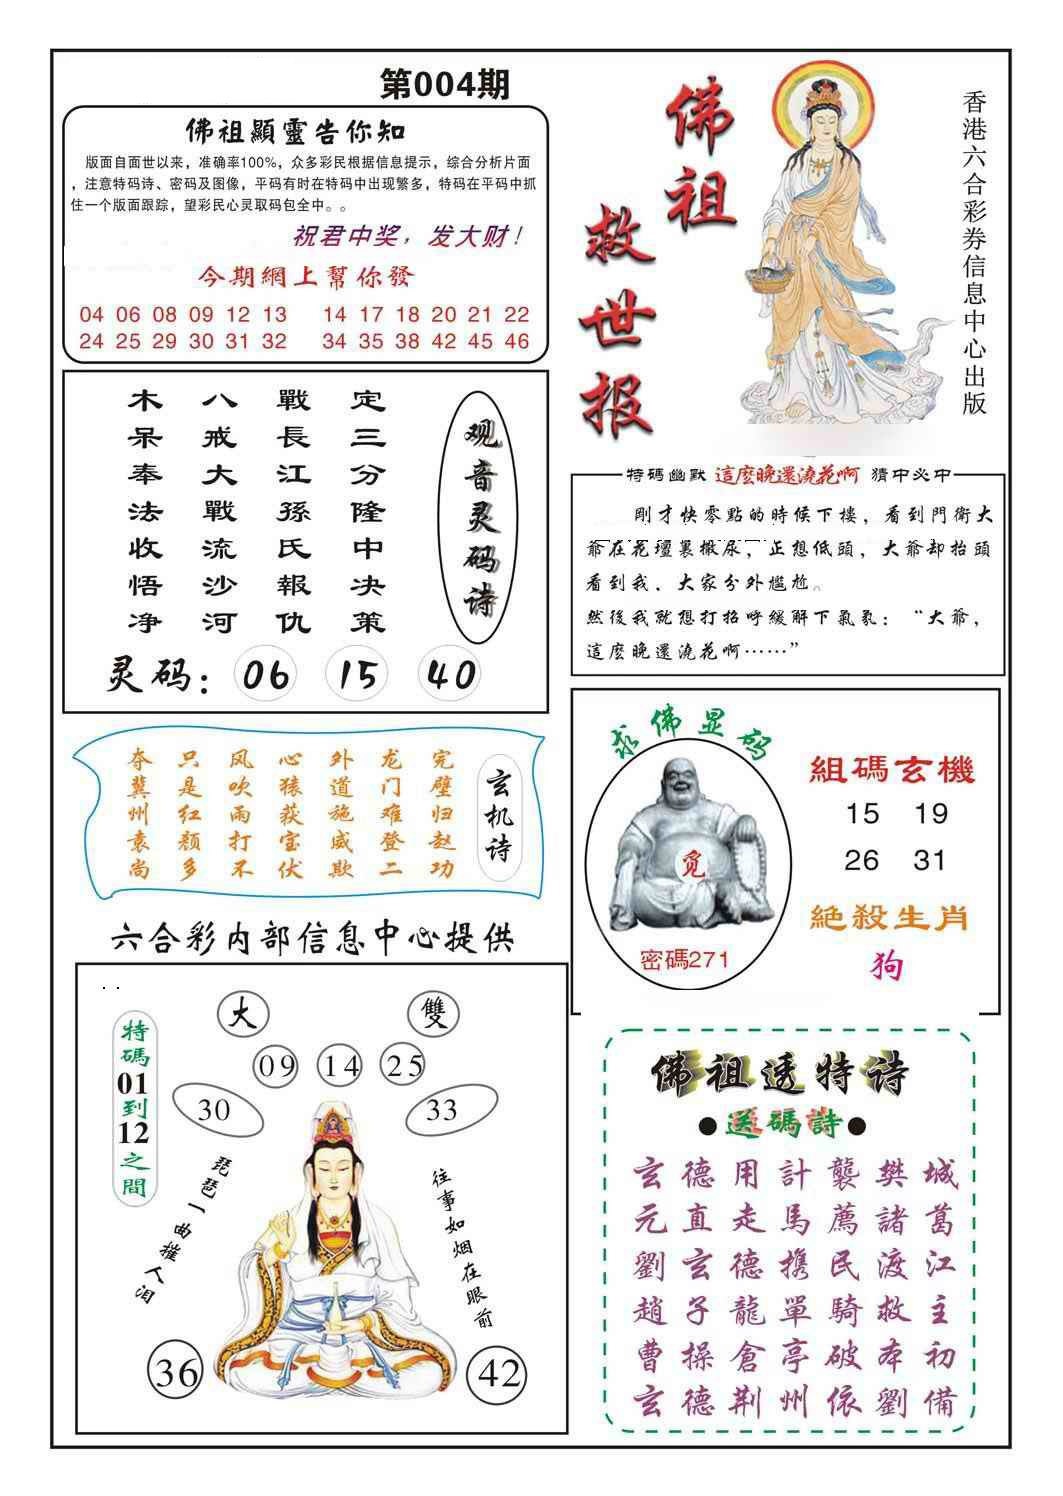 第004期
佛祖顯靈告你知
版面自面世以来，准确率100%，众多彩民根据信息提示，综合分析片面
，注意特码诗、密码及图像，平码有时在特码中出现繁多，特码在平码中抓
住一个版面跟踪，望彩民心灵取码包全中。。
祝君中奖，发大财！
今期網上幫你發
04 06 08 09 12 13 14 17 18 20 21 22
24 25 29 30 31 32 34 35 38 42 45 46
佛祖
救世报
香港六合彩券信息中心出版
观音灵码诗
定三分隆中决策
戰長江孫氏報仇
八戒大戰流沙河
木呆奉法收悟净
灵码：06 15 40
特碼幽默 這麽晚還澆花啊 猜中必中
剛才快零點的時候下樓，看到門衛大
爺在花壇裏撒尿，正想低頭，大爺却抬頭
看到我，大家分外尴尬。
然後我就想打招呼緩解下氣氛：“大爺，
這麽晚還澆花啊……”
玄机诗
完璧归赵功
龙门难登二
外道施威欺
心猿获宝伏
风吹雨打不
只是红颜多
夺冀州袁尚
求佛显码
觅
密碼271
組碼玄機
15 19
26 31
絕殺生肖
狗
六合彩内部信息中心提供
特碼01到12之間
大 雙
09 14 25
30 33
琵琶一曲摧人泪
往事如烟在眼前
36 42
佛祖透特诗
●送碼詩●
玄德用計襲樊城
元直走馬薦諸葛
劉玄德攜民渡江
趙子龍單騎救主
曹操倉亭破本初
玄德荆州依劉備